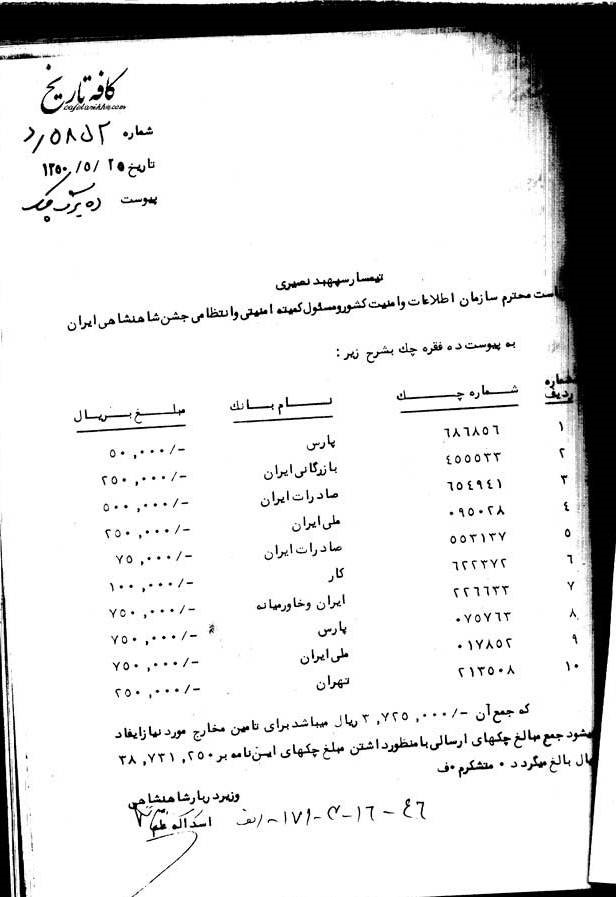 کافه تاریخ
cafetarikh.com
شماره ۵۸۵۲/د
تاریخ ۲۵ /۵/ ۱۳۵۰
پیوست ده برگ چک
تیمسار سپهبد نصیری
است محترم سازمان اطلاعات وامنیت کشور و مسئول کمیته امنیتی وانتظامی جشن شاهنشاهی ایران
به پیوست ده فقره چك بشرح زیر :
شماره ردیف شماره چك نام بانك مبلغ بریال
۱ ۶۸۶۸۵۶ پارس ۵۰,۰۰۰/-
۲ ۴۵۵۵۳۳ بازرگانی ایران ۲۵۰,۰۰۰/-
۳ ۶۵۴۹۴۱ صادرات ایران ۵۰۰,۰۰۰/-
۴ ۰۹۵۰۲۸ ملی ایران ۲۵۰,۰۰۰/-
۵ ۵۵۳۱۳۷ صادرات ایران ۷۵,۰۰۰/-
۶ ۶۲۲۳۷۲ کار ۱۰۰,۰۰۰/-
۷ ۲۲۶۶۳۳ ایران وخاورمیانه ۷۵۰,۰۰۰/-
۸ ۰۷۵۷۶۳ پارس ۷۵۰,۰۰۰/-
۹ ۰۱۷۸۵۲ ملی ایران ۷۵۰,۰۰۰/-
۱۰ ۲۱۳۵۰۸ تهران ۲۵۰,۰۰۰/-
که جمع آن -/۳,۷۲۵,۰۰۰ ریال میباشد برای تامین مخارج مورد نیاز ایفاد
میشود جمع مبالغ چکهای ارسالی با منظور داشتن مبلغ چکهای این نامه بر ۳۸,۷۳۱,۲۵۰
یال بالغ میگردد ۰ متشکرم ۰ف
وزیر دربار شاهنشاهی
اسداله علم
۴۶-۱۶-۳-۱۷۹-الف